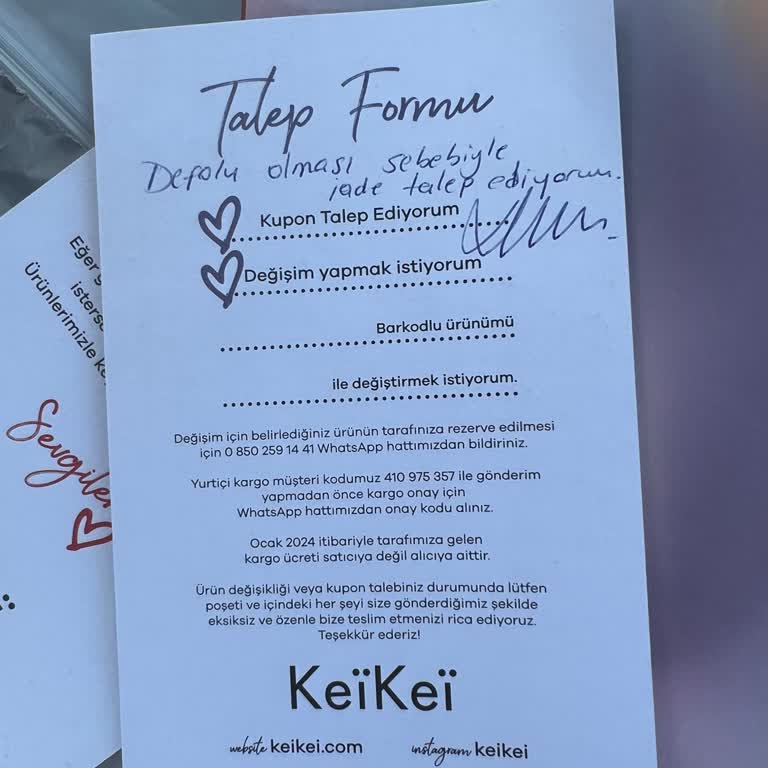 Talep Formu
Defolu olması sebebiyle
iade talep ediyorum.
Kupon Talep Ediyorum
Değişim yapmak istiyorum
Barkodlu ürünümü
ile değiştirmek istiyorum.
Değişim için belirlediğiniz ürünün tarafınıza rezerve edilmesi
için 0 850 259 14 41 WhatsApp hattımızdan bildiriniz.
Yurtiçi kargo müşteri kodumuz 410 975 357 ile gönderim
yapmadan önce kargo onay için
WhatsApp hattımızdan onay kodu alınız.
Ocak 2024 itibariyle tarafımıza gelen
kargo ücreti satıcıya değil alıcıya aittir.
Ürün değişikliği veya kupon talebiniz durumunda lütfen
poşeti ve içindeki her şeyi size gönderdiğimiz şekilde
eksiksiz ve özenle bize teslim etmenizi rica ediyoruz.
Teşekkür ederiz!
KeïKeï
website keikei.com
instagram keikei
Eğer
Ürünlerimizle